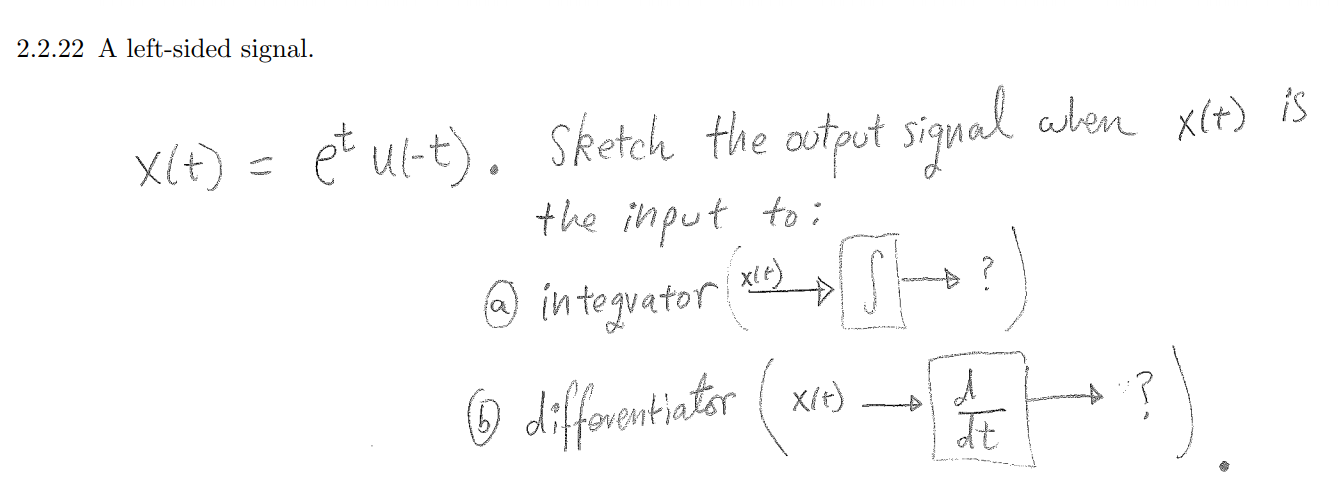 2.2.22 A left-sided signal.
x(t) = e^t u(-t). Sketch the output signal when x(t) is
the input to:
(a) integrator (x(t) → ∫ → ?)
(b) differentiator (x(t) → d/dt → ?).